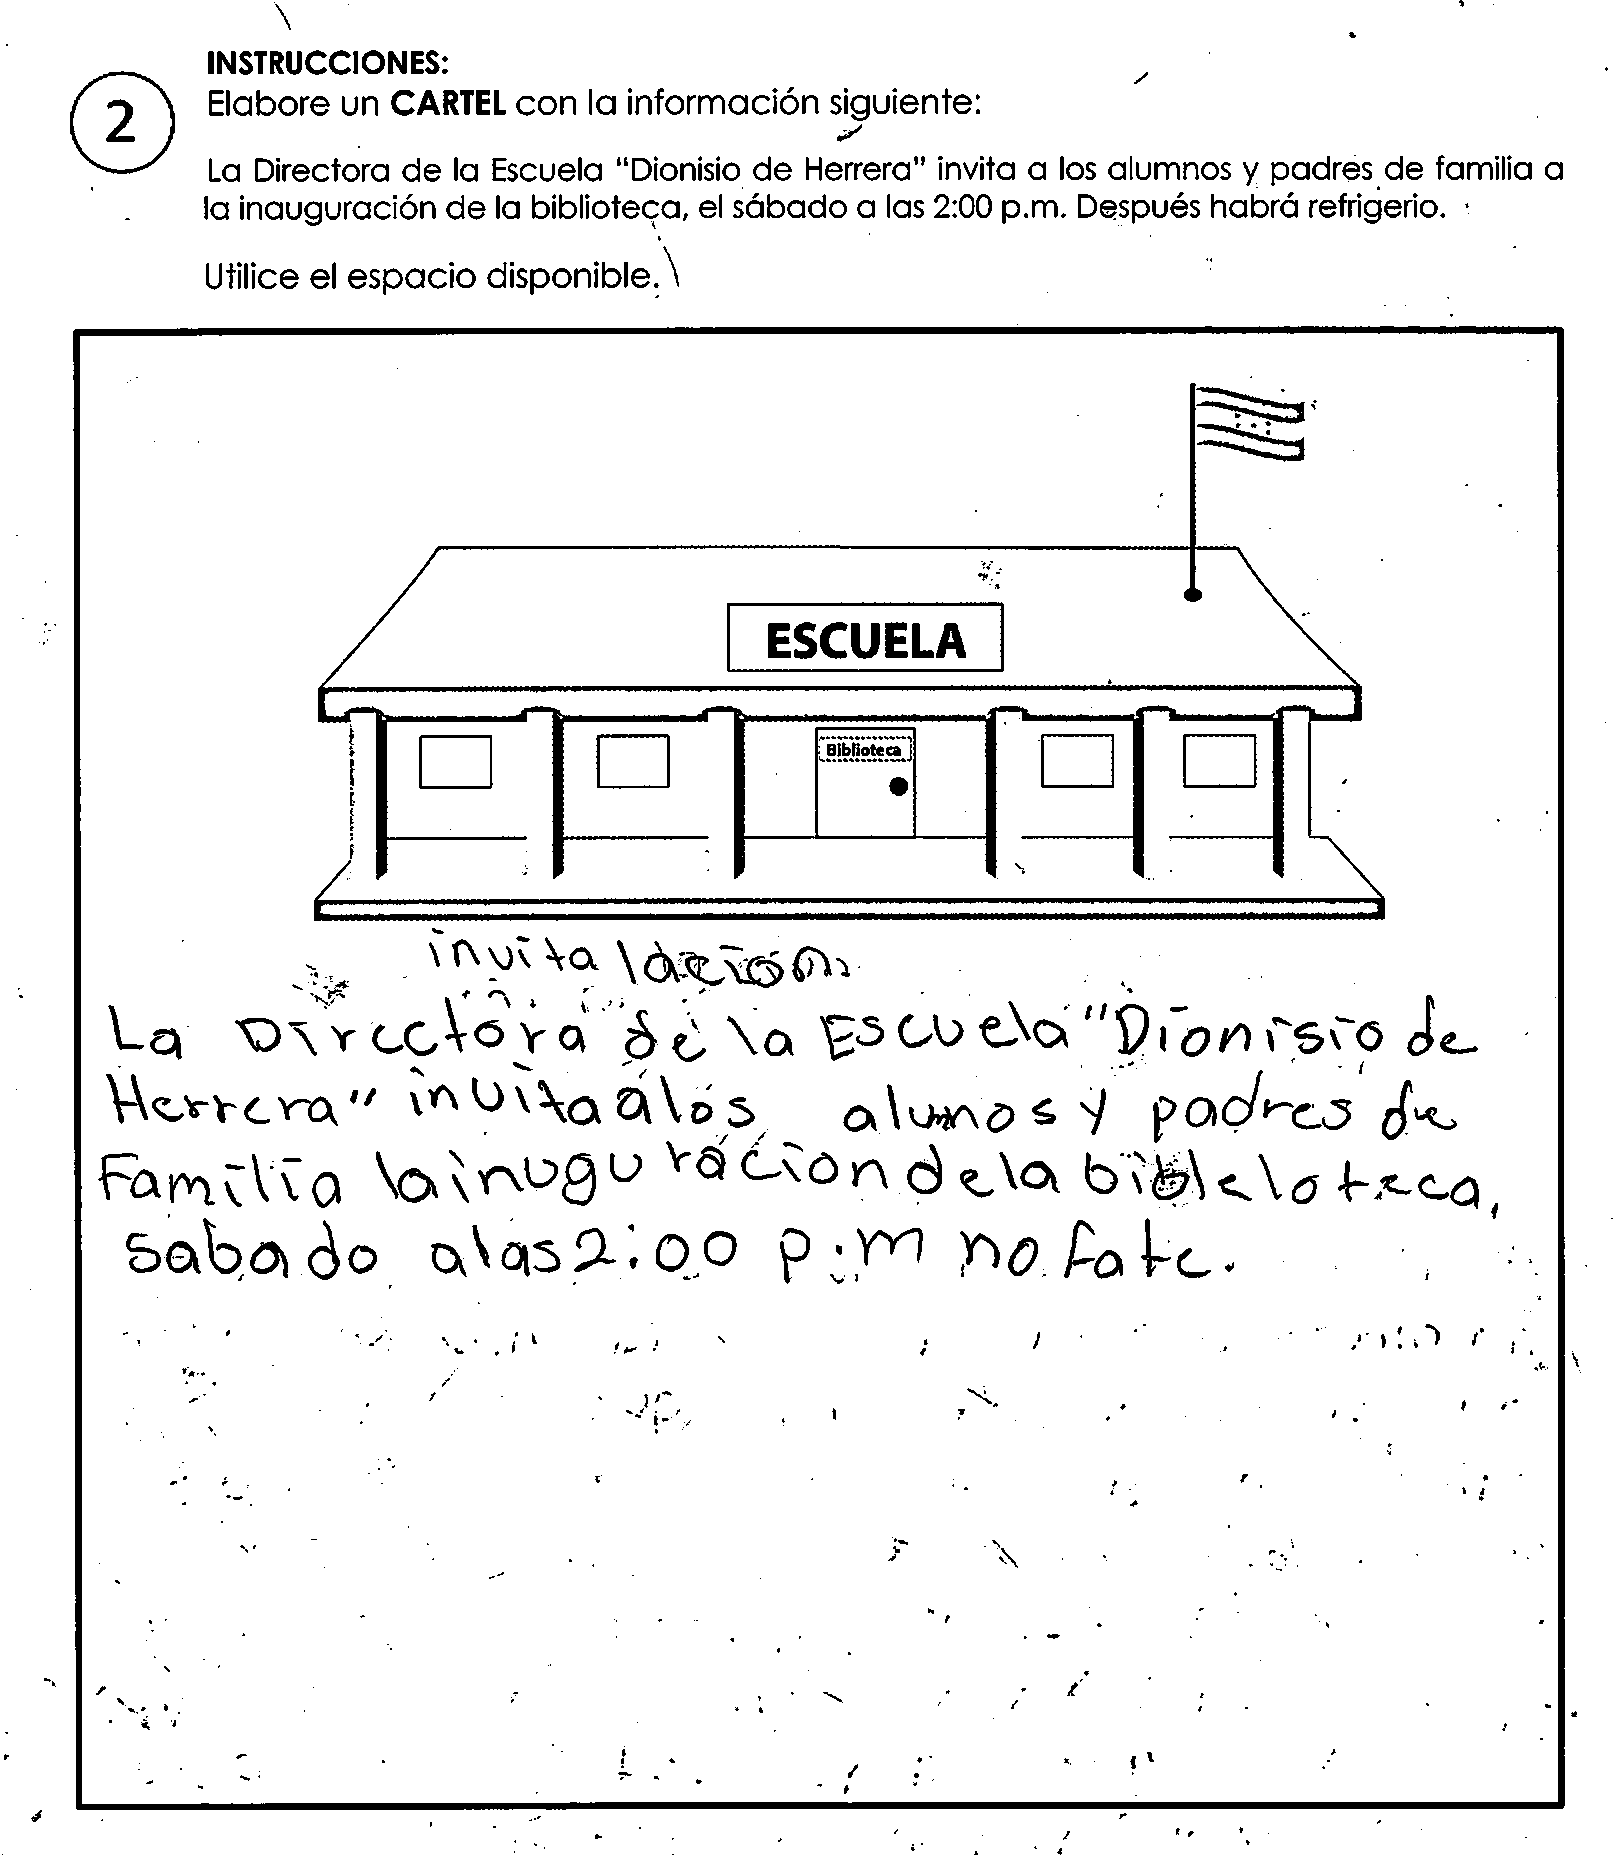 INSTRUCCIONES:
2
Elabore un CARTEL con la información siguiente:
La Directora de la Escuela "Dionisio de Herrera" invita a los alumnos y padres de familia a
la inauguración de la biblioteca, el sábado a las 2:00 p.m. Después habrá refrigerio.
Utilice el espacio disponible.
ESCUELA
Biblioteca
invita lacion
La Directora de la Escuela "Dionisio de
Herrera" invita a los alumnos y padres de
Familia la inuguracion de la
sabado a las 2:00 p.m no fate.